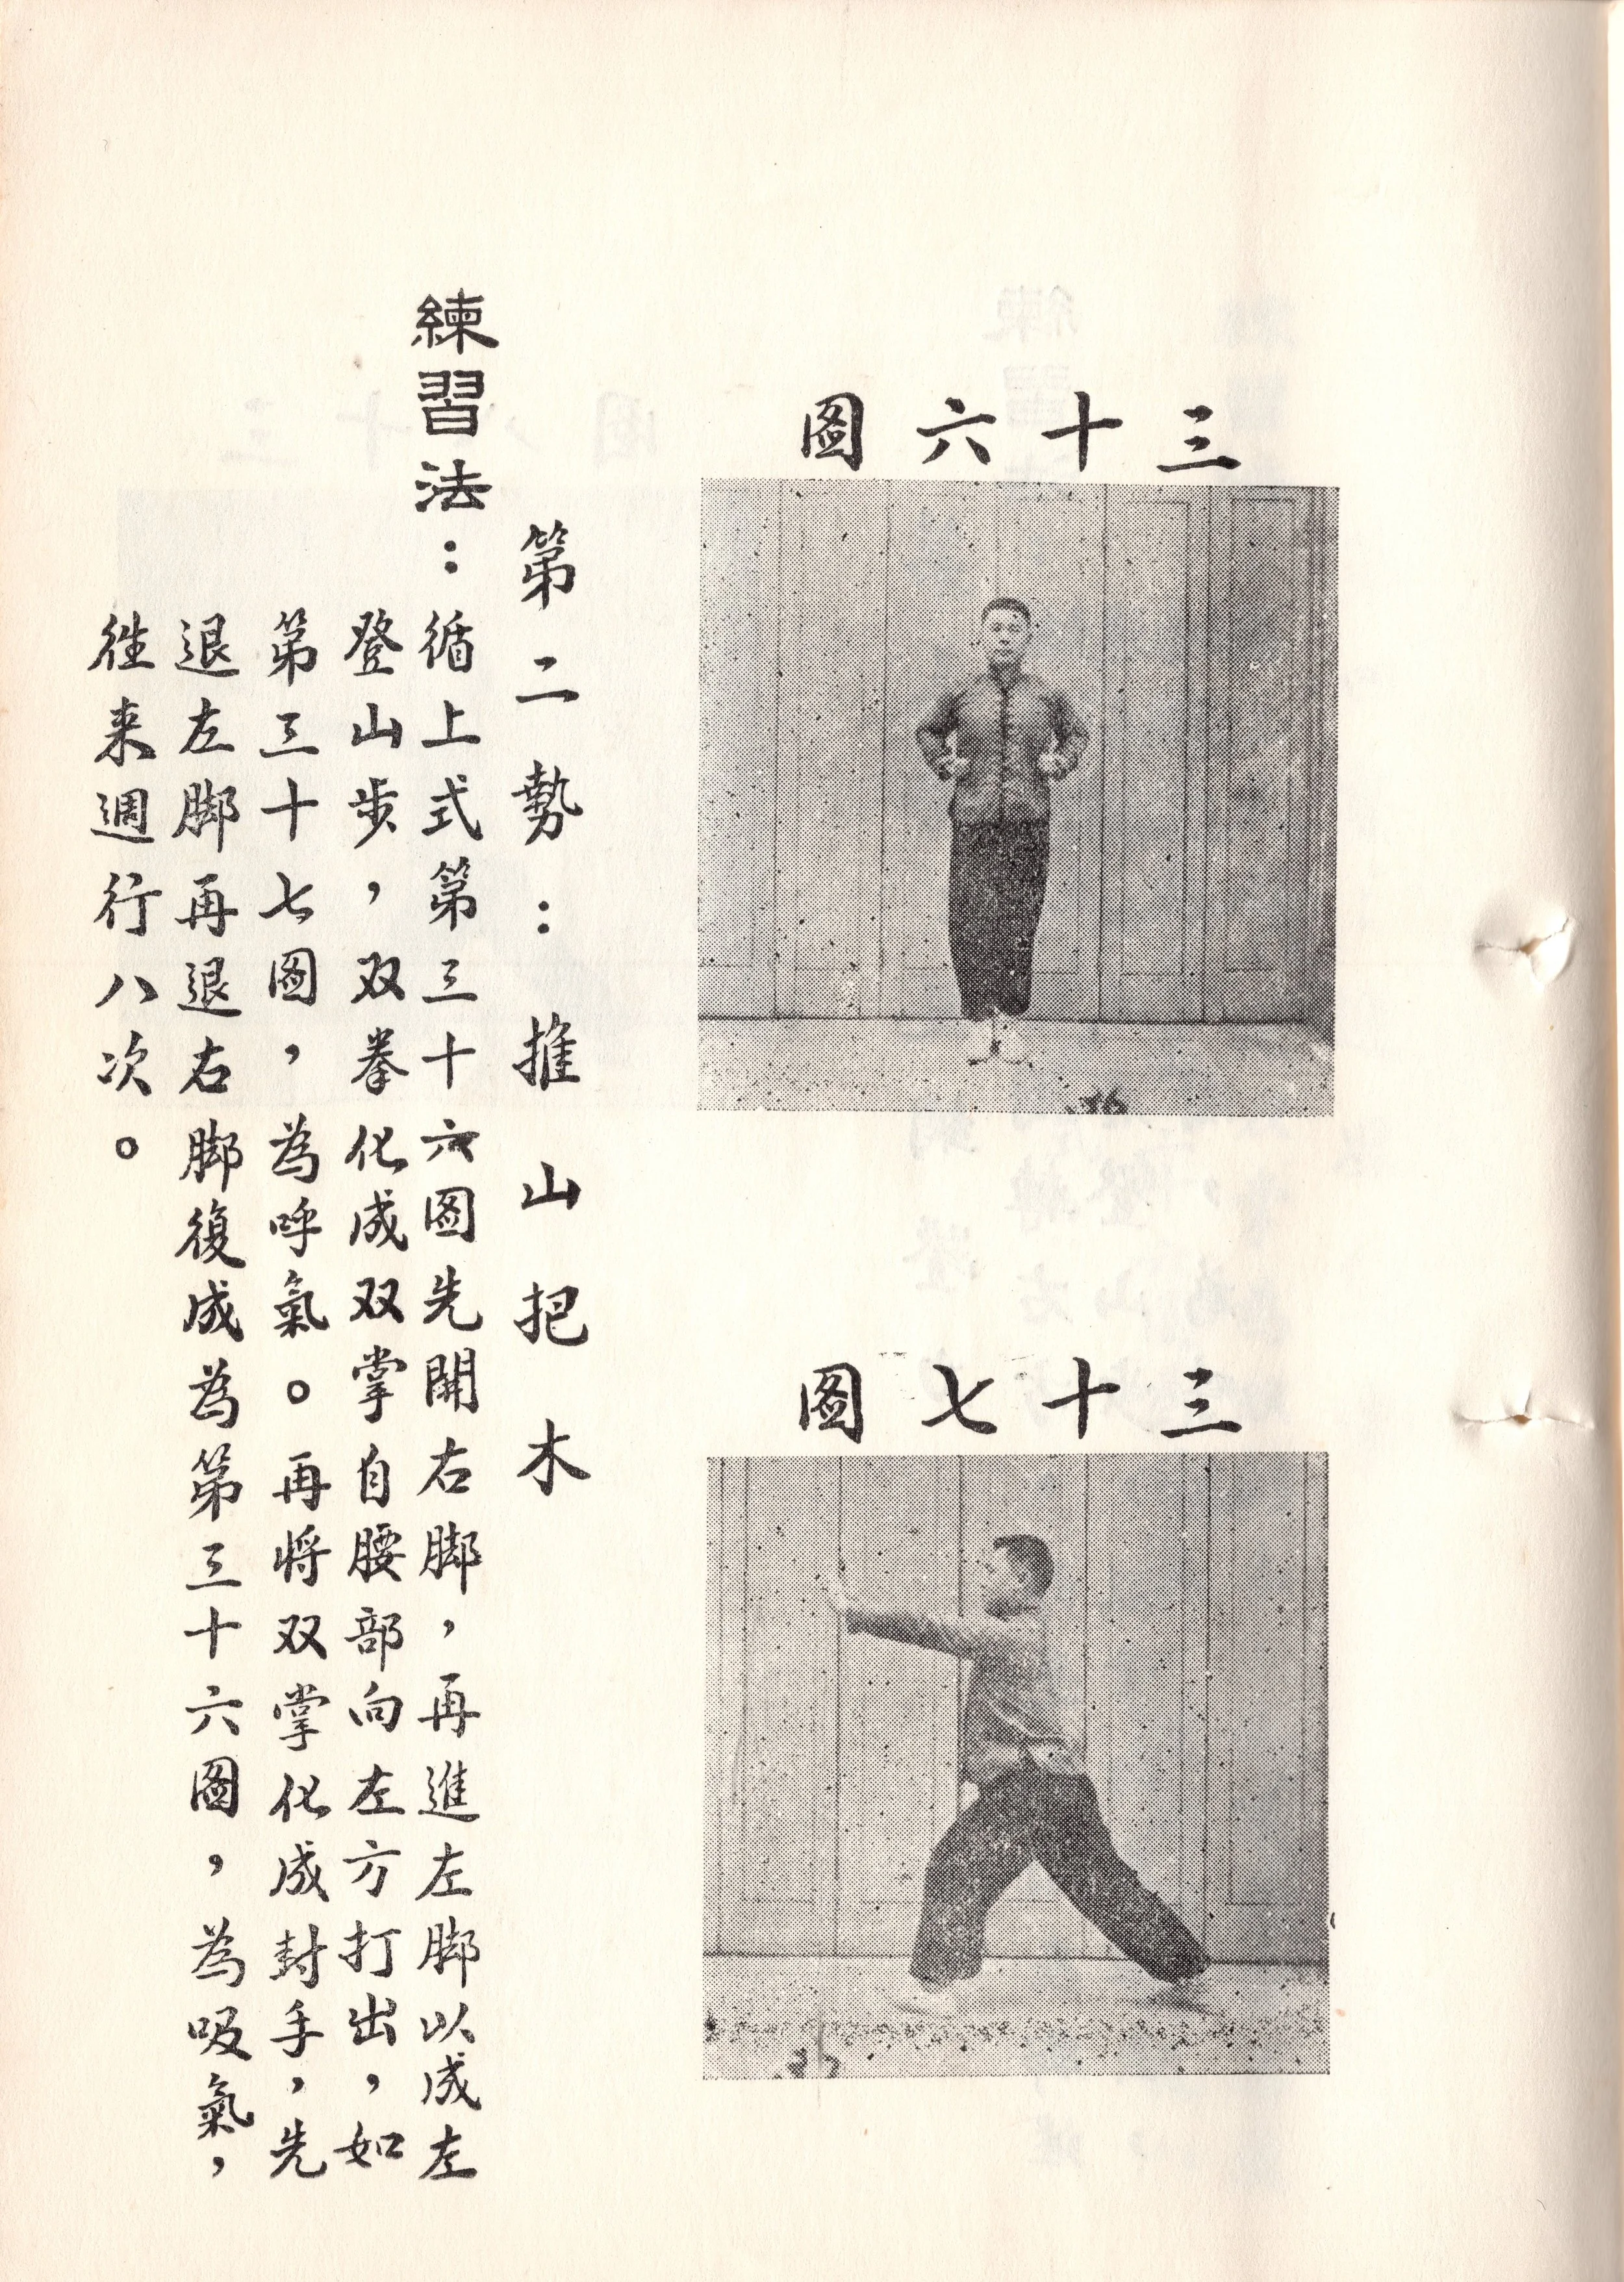 三十六图
三十七图
第二勢：推山把木
練習法：循上式第三十六图先開右脚，再進左脚以成左
登山步，双拳化成双掌自腰部向左方打出，如
第三十七图，為呼氣。再将双掌化成封手，先
退左脚再退右脚復成為第三十六图，為吸氣，
徃来週行八次。